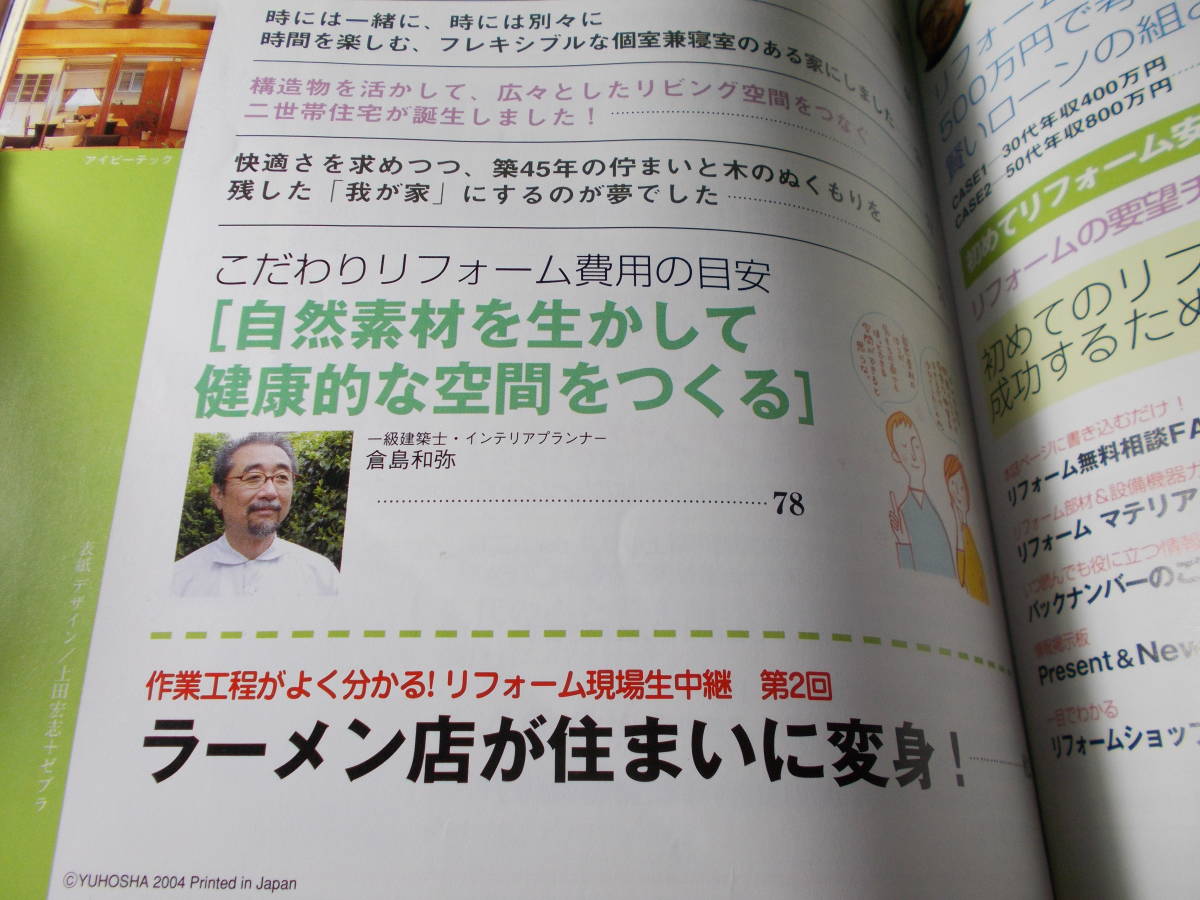 時には一緒に、時には別々に
時間を楽しむ、フレキシブルな個室兼寝室のある家にしました
構造物を活かして、広々としたリビング空間をつなぐ
二世帯住宅が誕生しました!
快適さを求めつつ、築45年の佇まいと木のぬくもりを
残した「我が家」にするのが夢でした
こだわりリフォーム費用の目安
[自然素材を生かして
健康的な空間をつくる]
一級建築士・インテリアプランナー
倉島和弥
78
作業工程がよく分かる!リフォーム現場生中継 第2回
ラーメン店が住まいに変身!
©YUHOSHA 2004 Printed in Japan
アイビーテック
表紙デザイン/上田宏志+ゼブラ
リフォーム
500万円で
賢いローンの組
CASE1 30代年収400万円
CASE2 50代年収800万円
初めてリフォーム安
リフォームの要望
初めてのリフ
成功するため
ページに書き込むだけ!
リフォーム無料相談FA
リフォーム部材&設備機器カ
リフォーム マテリア
いつ読んでも役に立つ情報
バックナンバーのご
情報掲示板
Present&New
一目でわかる
リフォームショップ